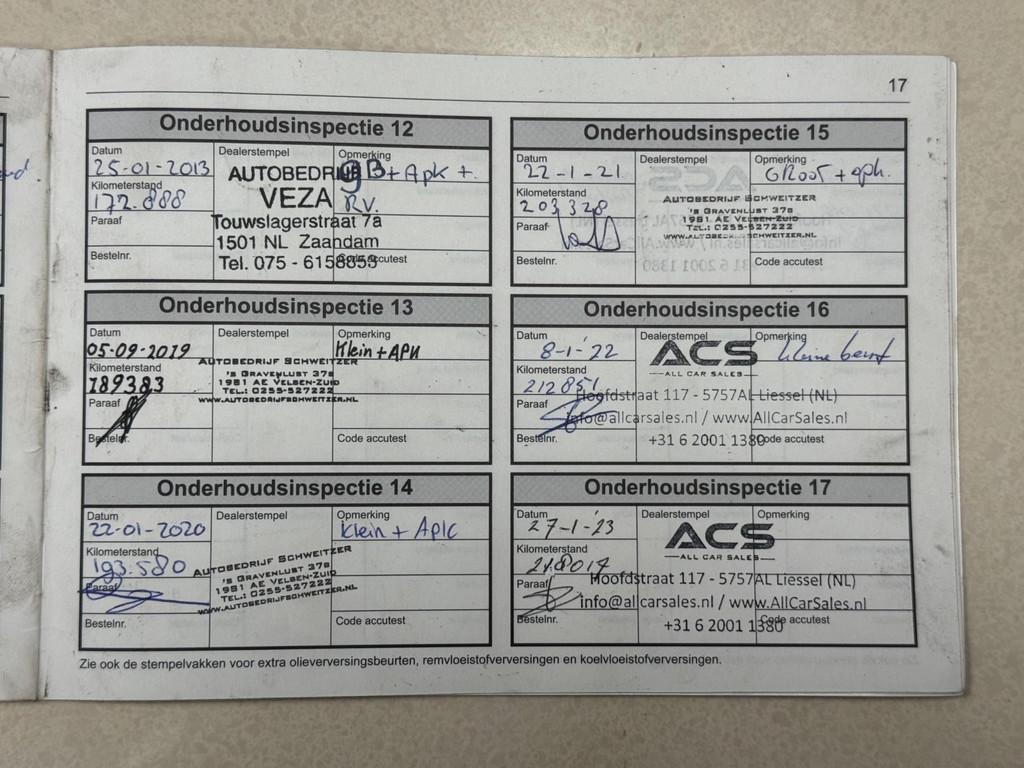 17
Onderhoudsinspectie 12
Datum
25-01-2013
Kilometerstand
172.888
Paraaf
Bestelnr.
Dealerstempel
AUTOBEDRIJF
VEZA
Touwslagerstraat 7a
1501 NL Zaandam
Tel. 075 - 6158853
Opmerking
gB + Apk +.
RV.
Code accutest
Onderhoudsinspectie 13
Datum
05-09-2019
Kilometerstand
189383
Paraaf
Bestelnr.
Dealerstempel
AUTOBEDRIJF SCHWEITZER
'S GRAVENLUST 37B
1981 AE VELSEN-ZUID
TEL.: 0255-527222
WWW.AUTOBEDRIJFSCHWEITZER.NL
Opmerking
Klein + APK
Code accutest
Onderhoudsinspectie 14
Datum
22-01-2020
Kilometerstand
193.580
Paraaf
Bestelnr.
Dealerstempel
AUTOBEDRIJF SCHWEITZER
'S GRAVENLUST 37B
1981 AE VELSEN-ZUID
TEL.: 0255-527222
WWW.AUTOBEDRIJFSCHWEITZER.NL
Opmerking
Klein + APK
Code accutest
Onderhoudsinspectie 15
Datum
22-1-21
Kilometerstand
203328
Paraaf
Bestelnr.
Dealerstempel
AUTOBEDRIJF SCHWEITZER
'S GRAVENLUST 37B
1981 AE VELSEN-ZUID
TEL.: 0255-527222
WWW.AUTOBEDRIJFSCHWEITZER.NL
Opmerking
GROOT + apk.
Code accutest
Onderhoudsinspectie 16
Datum
8-1-'22
Kilometerstand
212851
Paraaf
Bestelnr.
Dealerstempel
ACS
ALL CAR SALES
Hoofdstraat 117 - 5757AL Liessel (NL)
info@allcarsales.nl / www.AllCarSales.nl
+31 6 2001 1380
Opmerking
kleine beurt
Code accutest
Onderhoudsinspectie 17
Datum
27-1-'23
Kilometerstand
218014
Paraaf
Bestelnr.
Dealerstempel
ACS
ALL CAR SALES
Hoofdstraat 117 - 5757AL Liessel (NL)
info@allcarsales.nl / www.AllCarSales.nl
+31 6 2001 1380
Opmerking
Code accutest
Zie ook de stempelvakken voor extra olieverversingsbeurten, remvloeistofverversingen en koelvloeistofverversingen.